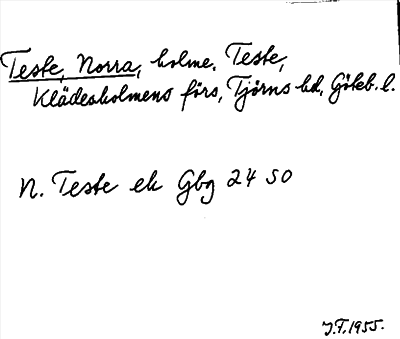 Teste, Norra, holme. Teste,
Klädesholmens förs, Tjörns hd, Göteb. l.
N. Teste ek Gbg 24 SO
J.F. 1955.